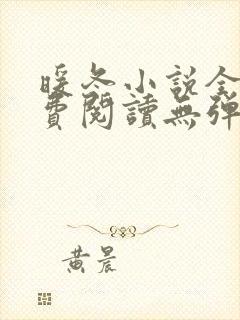 暖冬小说全
費閱讀無彈
黄晨